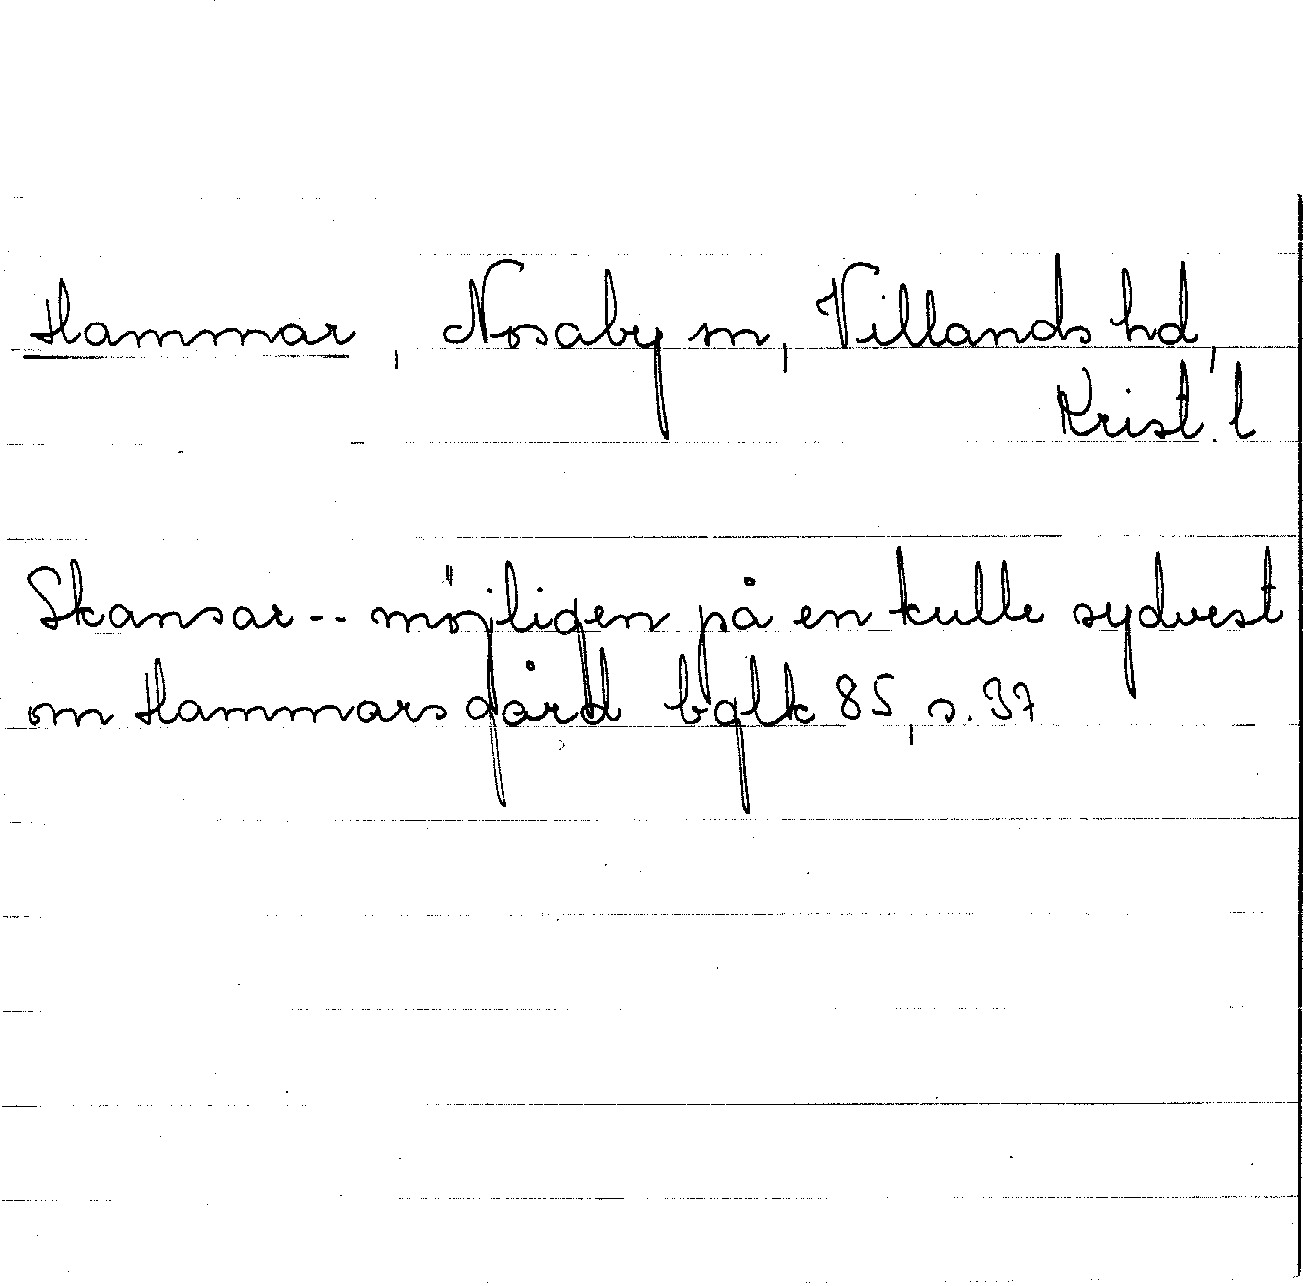 Hammar, Nosaby sn, Villands hd,
Krist. l
Skansar -- möjligen på en kulle sydvest
om Hammars gård bglk 85, s. 37